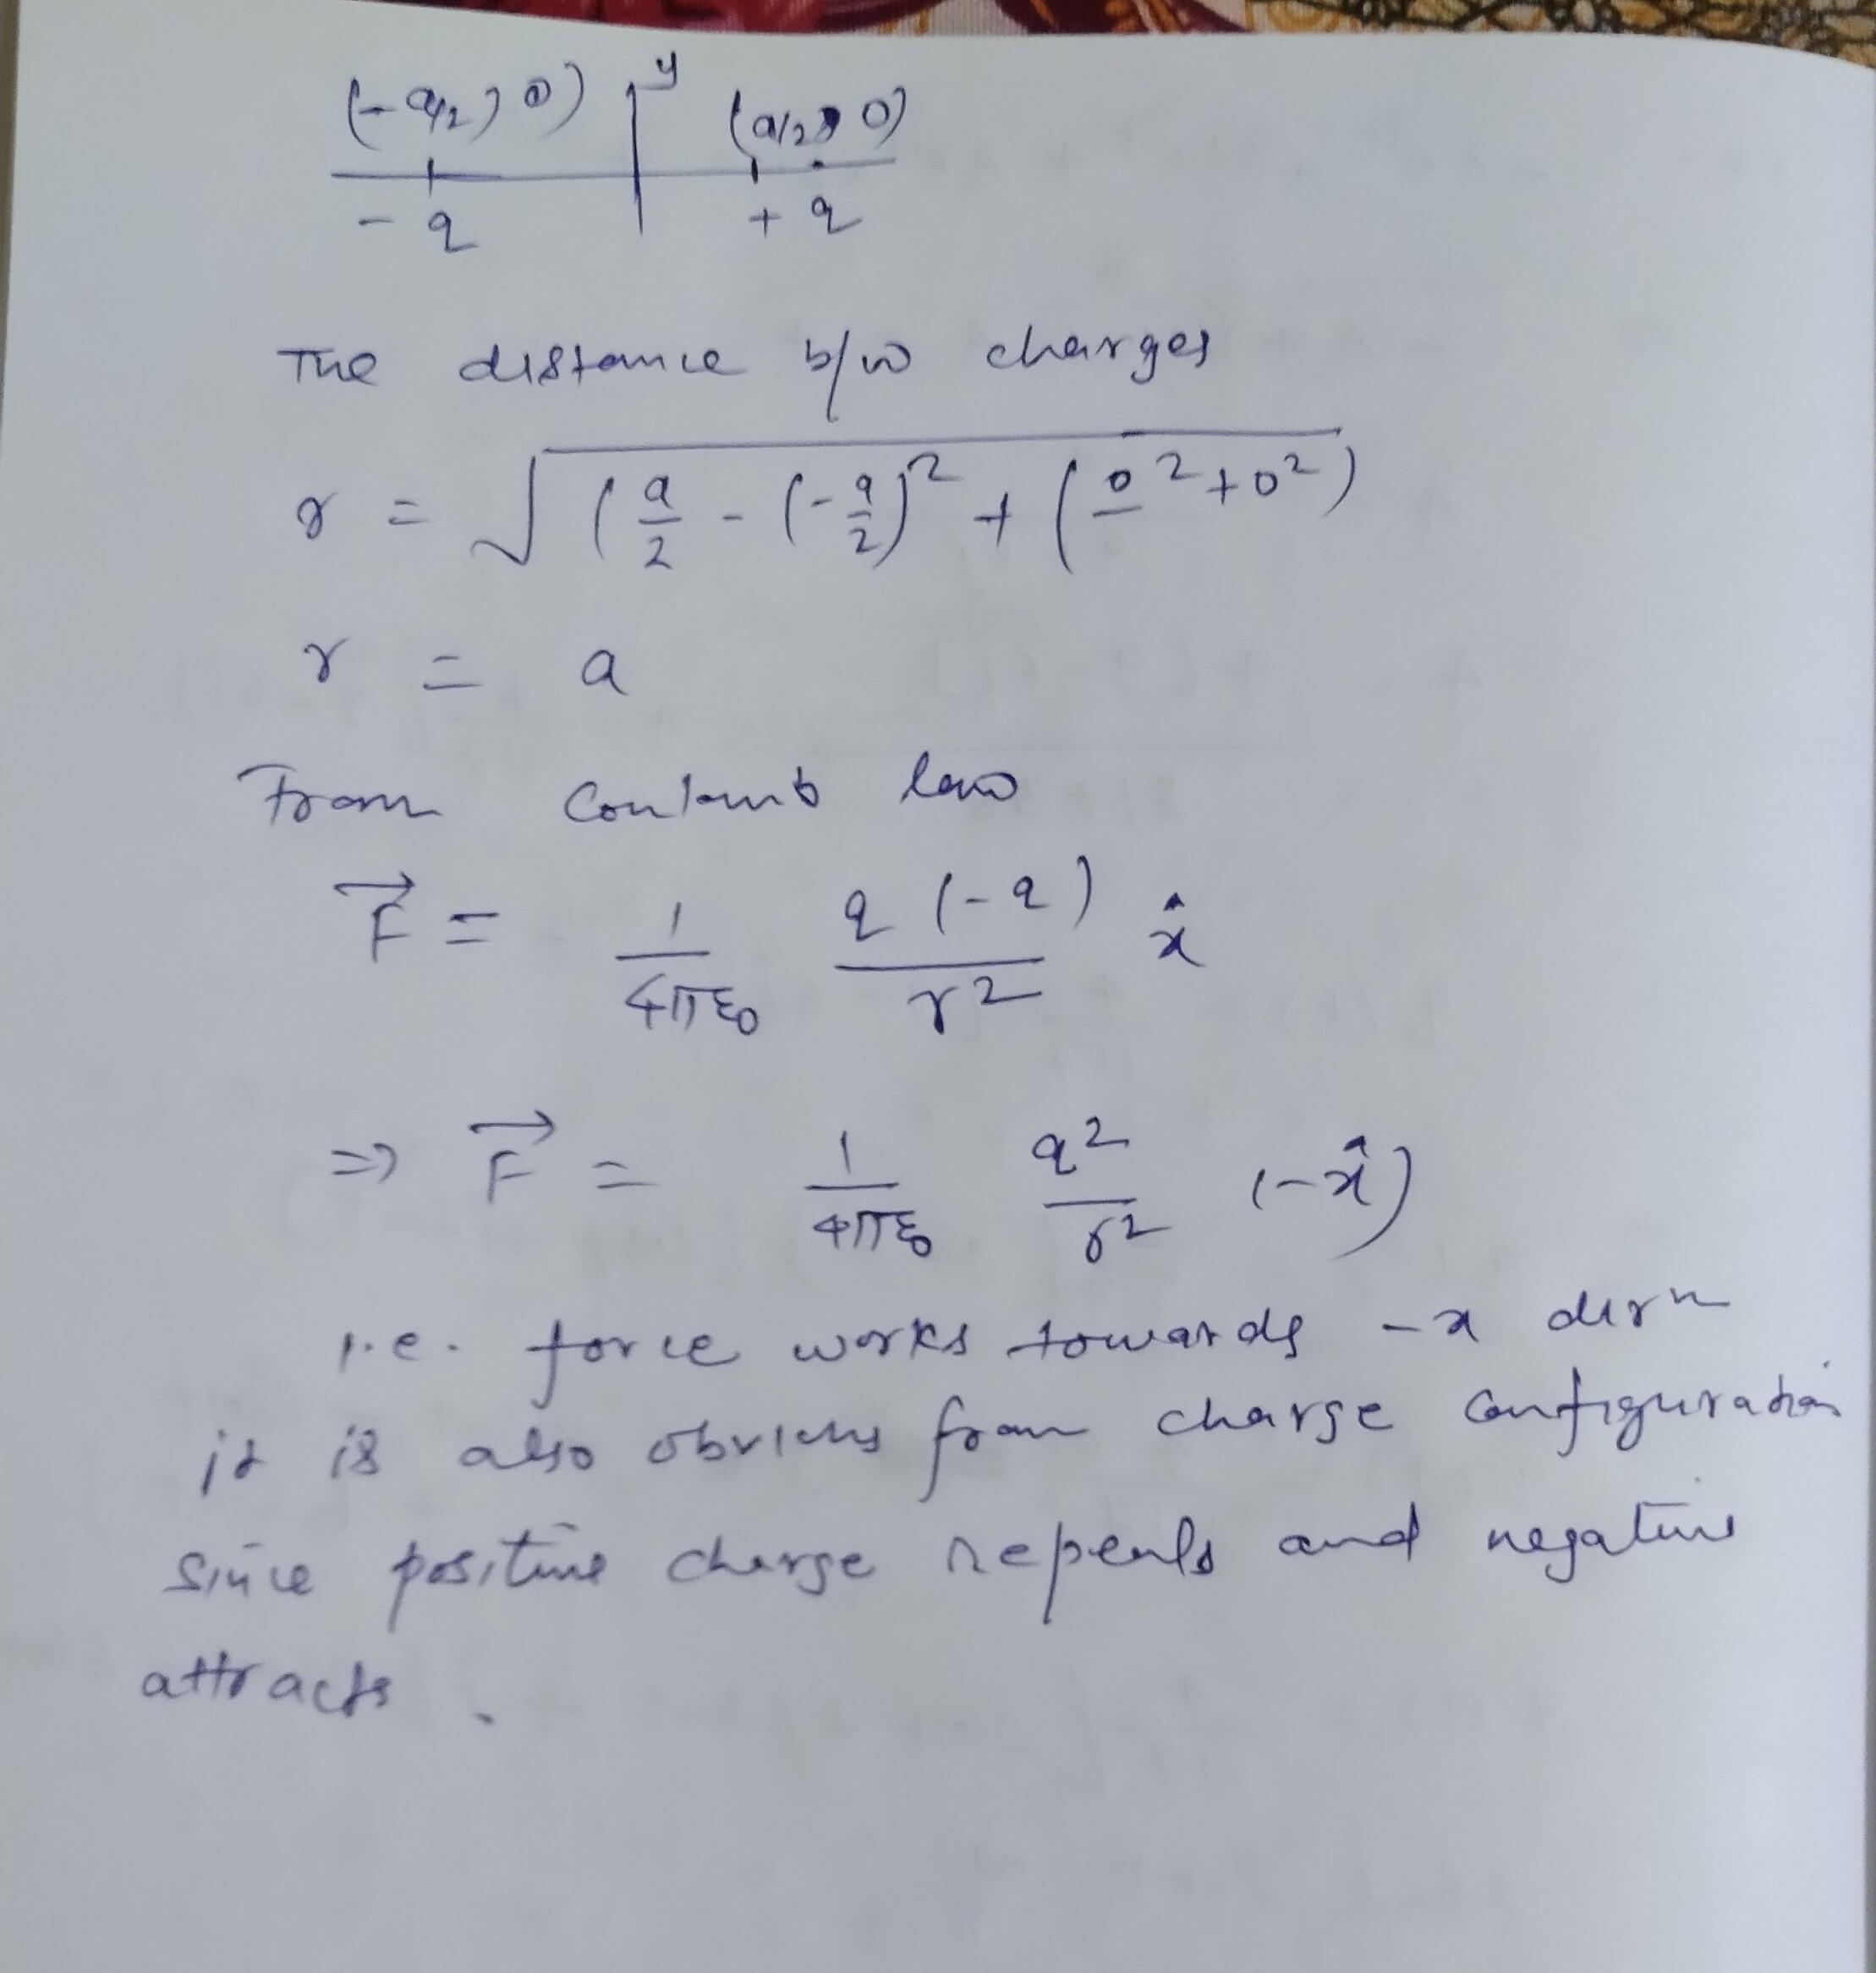 (-a/2, 0) y (a/2, 0)
- q + q
The distance b/w charges
r = √((a/2 - (-a/2)² + (0² + 0²)
r = a
From Coulomb law
F⃗ = 1/4πε0 q(-q)/r² x̂
=> F⃗ = 1/4πε0 q²/r² (-x̂)
i.e. force works towards -x dirn
it is also obvious from charge configuration
since positive charge repeals and negative
attracts.